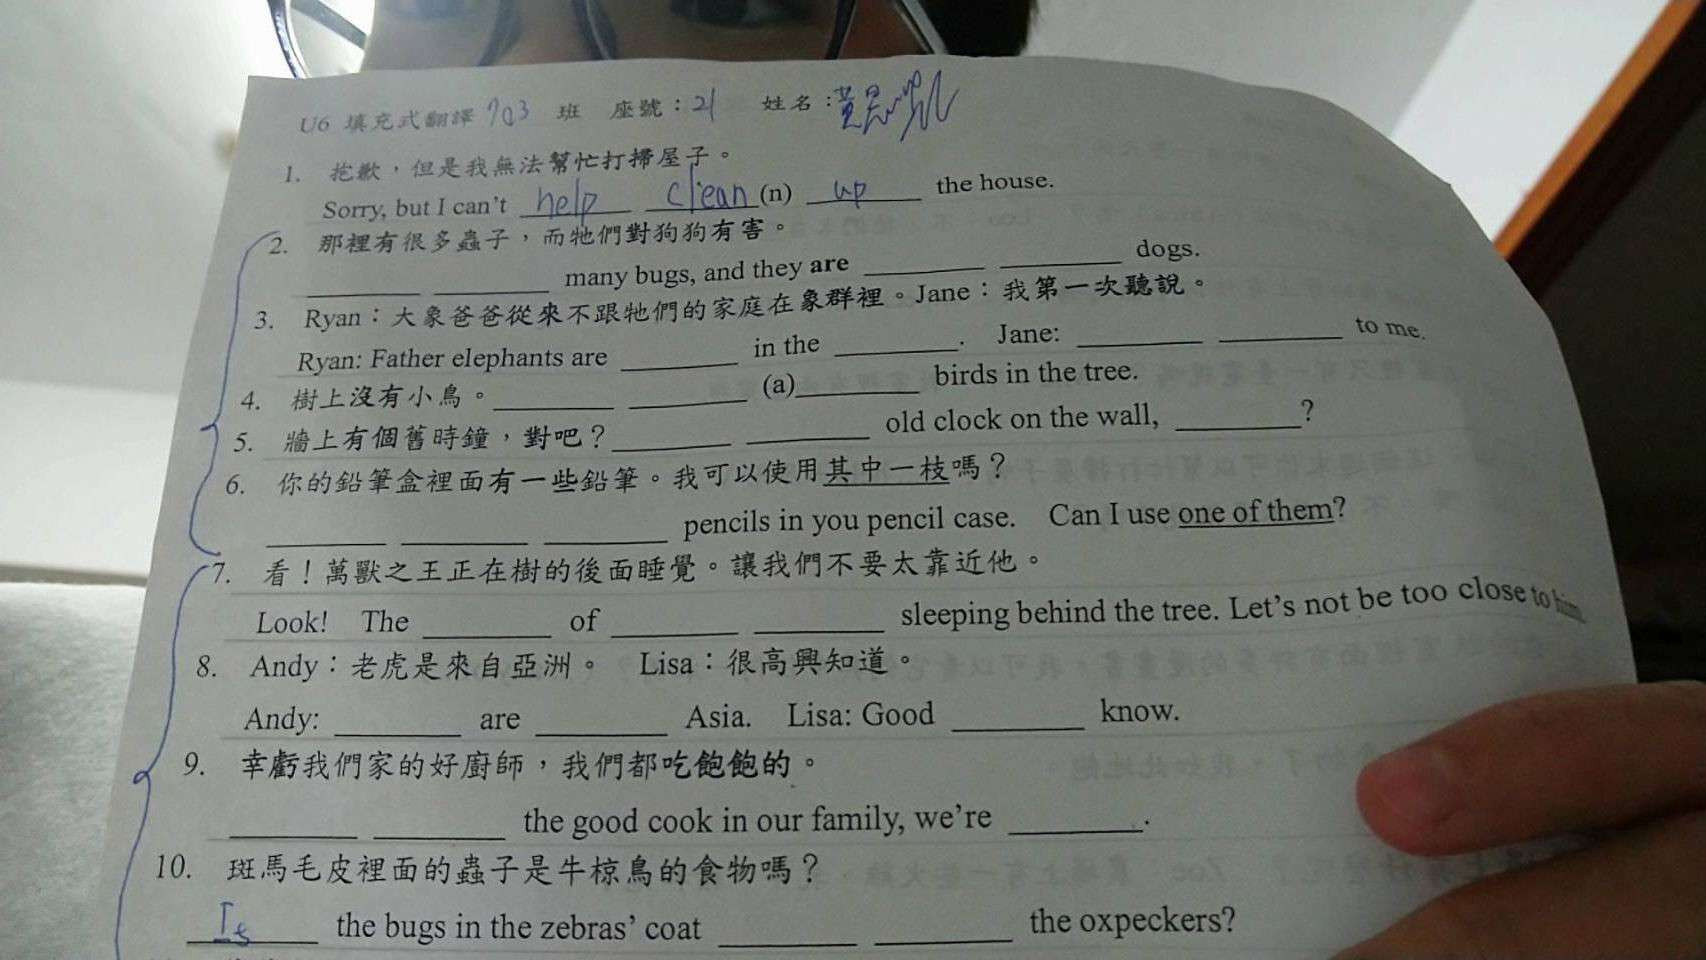 U6 填充式翻譯 703 班 座號：21 姓名：黃
1. 抱歉，但是我無法幫忙打掃屋子。
Sorry, but I can't help clean (n) up the house.
2. 那裡有很多蟲子，而牠們對狗狗有害。
________ ________ many bugs, and they are ________ ________ dogs.
3. Ryan：大象爸爸從來不跟牠們的家庭在象群裡。Jane：我第一次聽說。
Ryan: Father elephants are ________ in the ________. Jane: ________ ________ to me.
4. 樹上沒有小鳥。________ ________ (a)________ birds in the tree.
5. 牆上有個舊時鐘，對吧？________ ________ old clock on the wall, ________?
6. 你的鉛筆盒裡面有一些鉛筆。我可以使用其中一枝嗎？
________ ________ ________ pencils in you pencil case. Can I use one of them?
7. 看！萬獸之王正在樹的後面睡覺。讓我們不要太靠近他。
Look! The ________ of ________ ________ sleeping behind the tree. Let's not be too close to him
8. Andy：老虎是來自亞洲。 Lisa：很高興知道。
Andy: ________ are ________ Asia. Lisa: Good ________ know.
9. 幸虧我們家的好廚師，我們都吃飽飽的。
________ ________ the good cook in our family, we're ________.
10. 斑馬毛皮裡面的蟲子是牛椋鳥的食物嗎？
Is the bugs in the zebras' coat ________ ________ the oxpeckers?